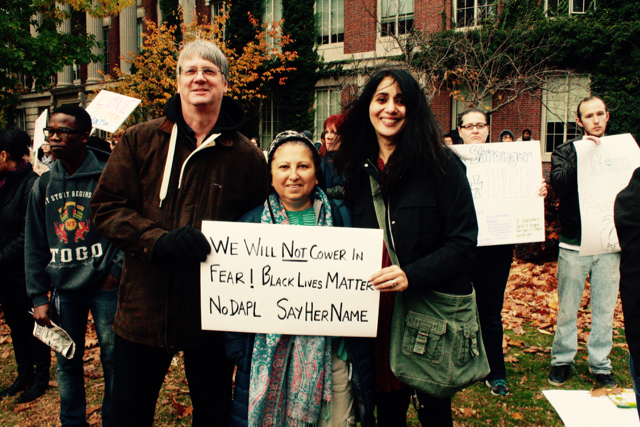 STORY BEGINS
TOGO
WE WILL NOT COWER IN
FEAR! BLACK LIVES MATTER
NODAPL SAYHERNAME